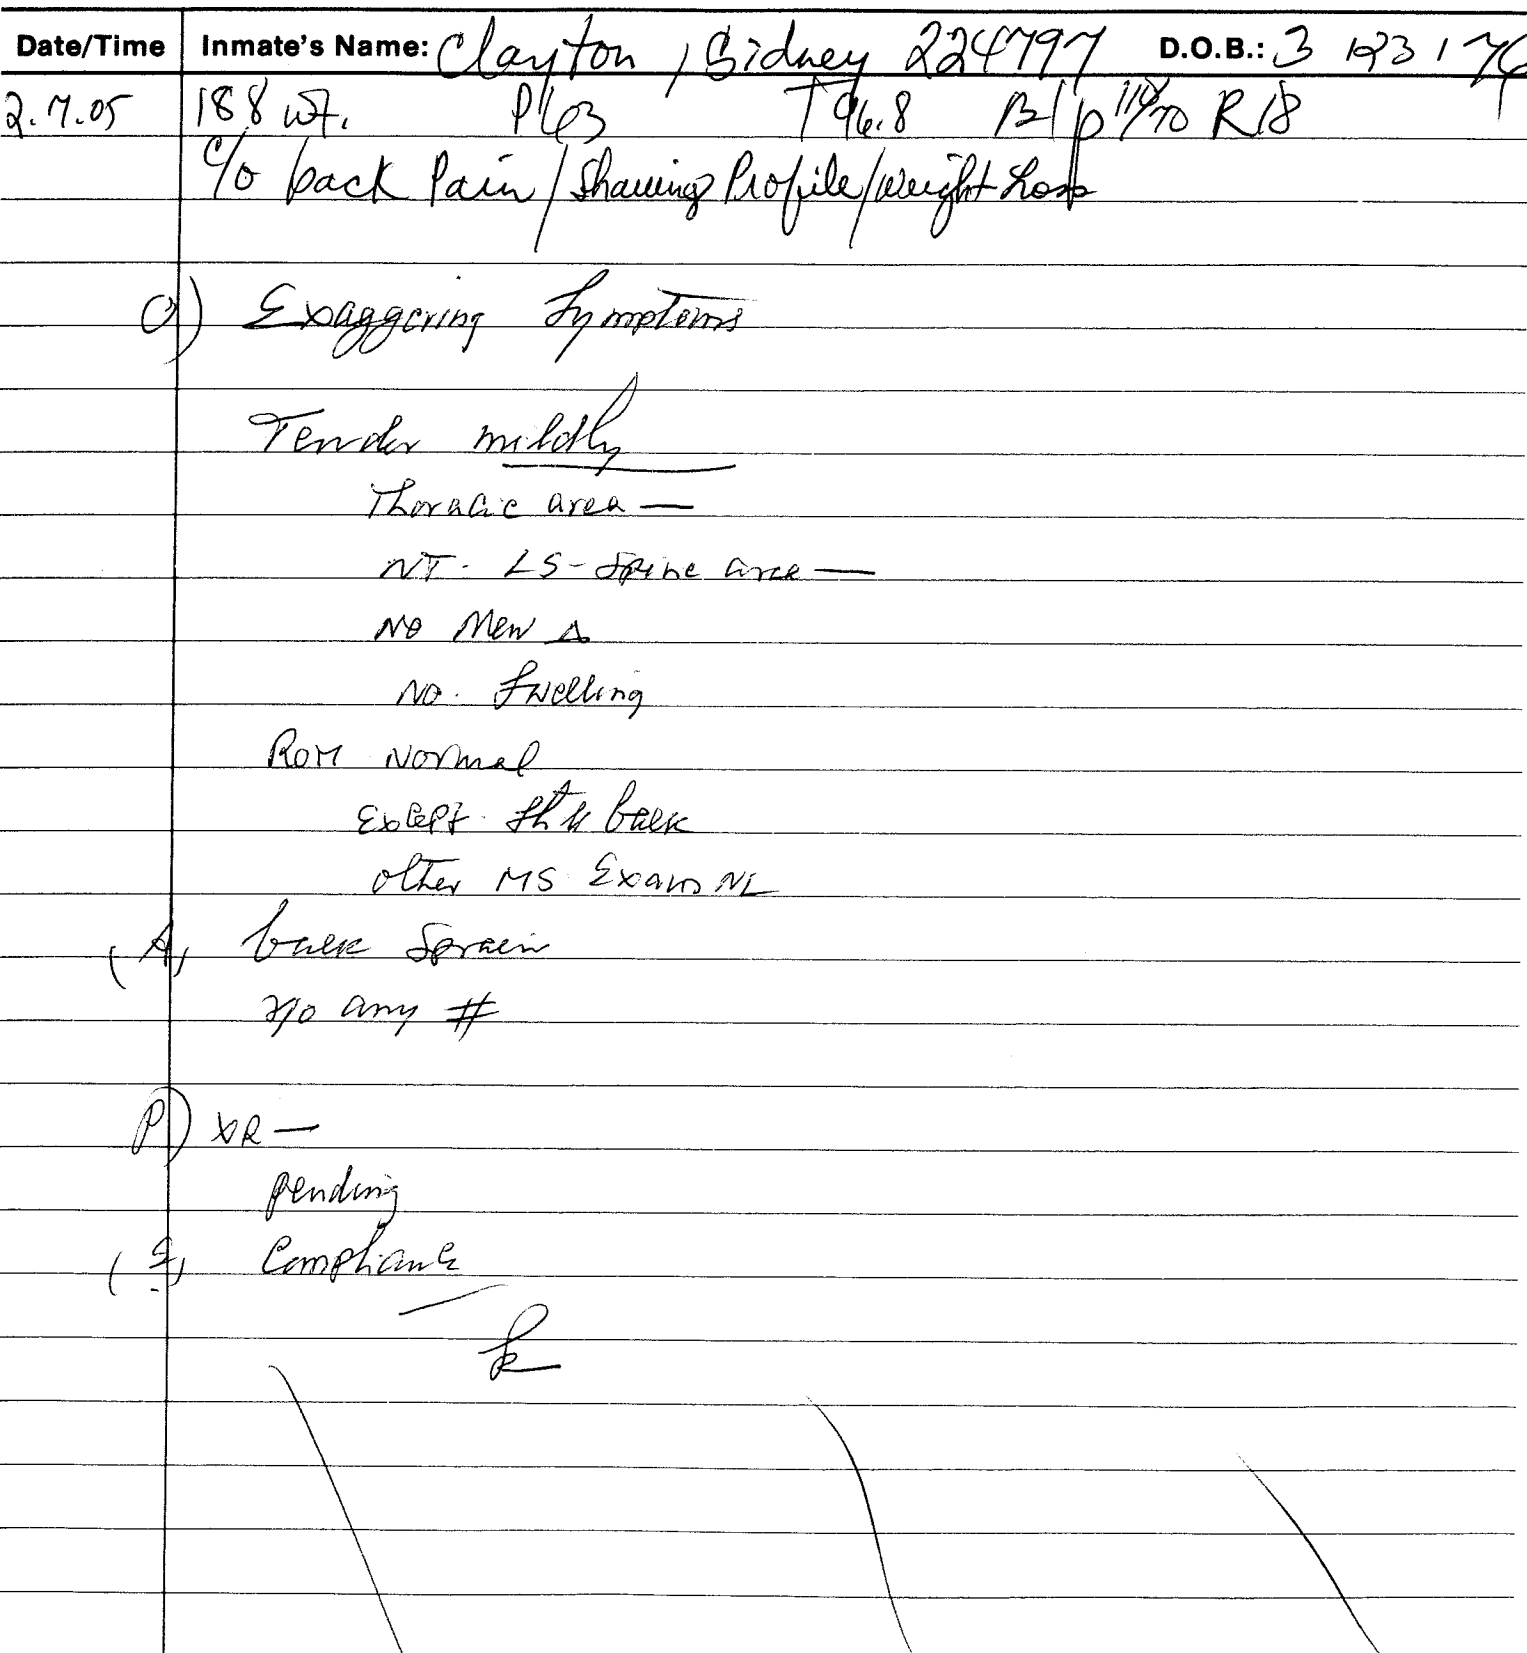 Date/Time Inmate's Name: Clayton, Sidney 224797 D.O.B.: 3 123 174
2.7.05 188 wt. P 63 T 96.8 B/p 110/70 R 18
c/o back Pain / Shaving Profile / Weight Loss
O) Exaggering Symptoms
Tender mildly
Thoracic area —
NT. LS-Spine area —
NO New Δ
NO. Swelling
ROM Normal
Except back
other MS Exam NL
(A) back Sprain
r/o any #
P) XR —
pending
Compliance